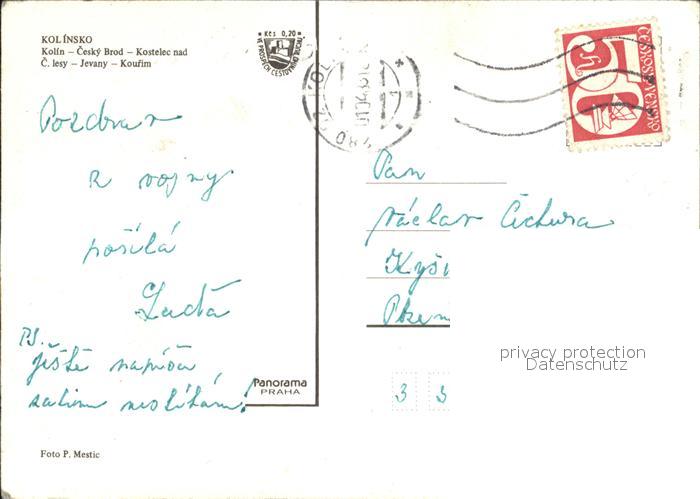 KOLÍNSKO
Kolín – Český Brod – Kostelec nad
Č. lesy – Jevany – Kouřim
Kčs 0,20
VE PROSPĚCH CESTOVNÍHO RUCHU
50 h
ČESKOSLOVENSKO
Pozdrav
z vojny
posílá
Laďa
PS.
ještě napíšu
zatím neslibám!
Pan
Václav Čichura
Kyši
Plzen
3 3
Panorama
PRAHA
Foto P. Mestic
privacy protection
Datenschutz